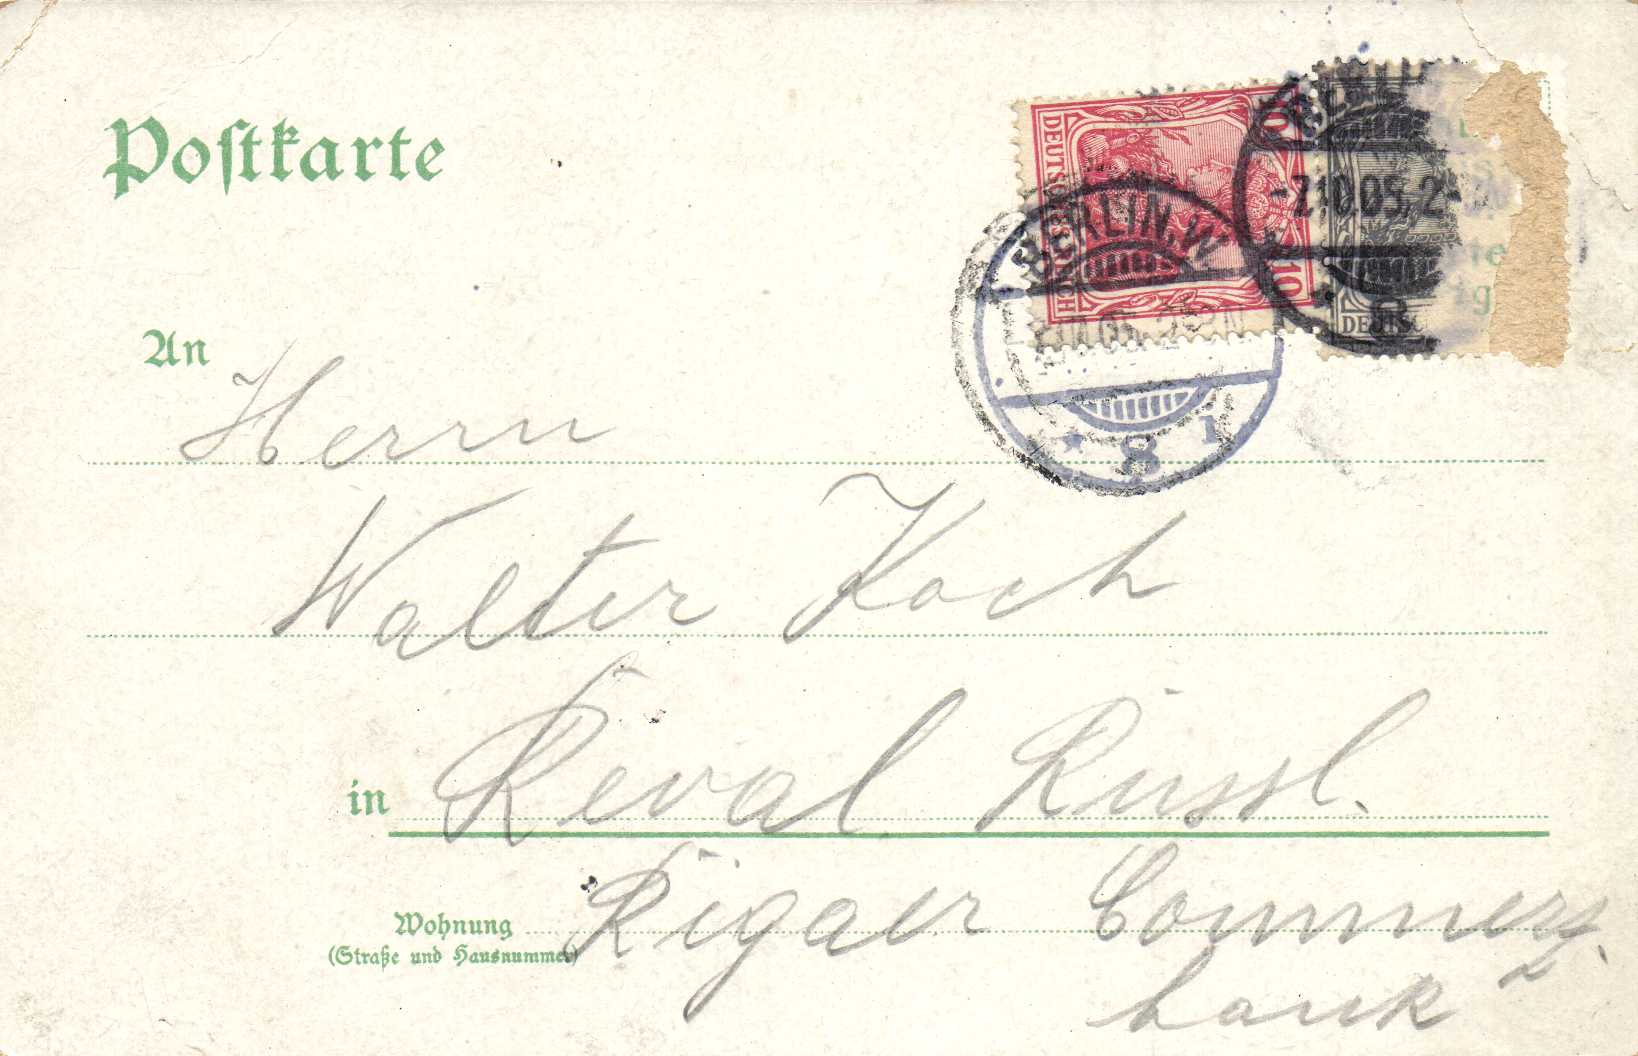 Postkarte
DEUTSCHES REICH
10
10
BERLIN.W
8
7.10.05.2-
DEUTSC
An
Herrn
Walter Koch
in Reval Russl.
Wohnung Rigaer Commerz-
(Straße und Hausnummer)
bank